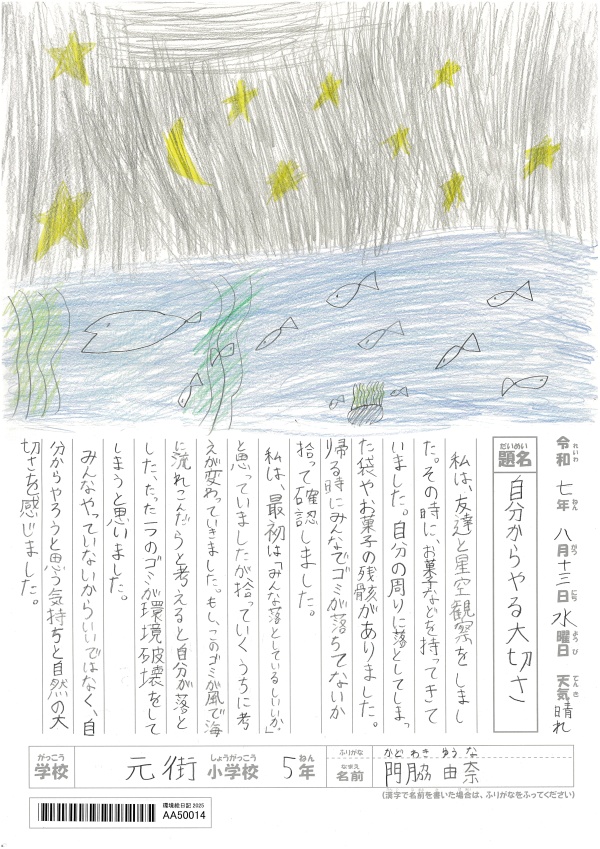 令和七年八月十三日水曜日 天気晴れ
れいわ ねん がつ にち ようび てんき
だいめい
題名 自分からやる大切さ
私は、友達と星空観察をしまし
た。その時に、お菓子などを持ってきて
いました。自分の周りに落としてしまっ
た袋やお菓子の残骸がありました。
帰る時にみんなでゴミが落ちてないか
拾って確認しました。
私は、最初は「みんな落としているしいいか。」
と思っていましたが拾っていくうちに考
えが変わっていきました。もし、このゴミが風で海
に流れこんだらと考えると自分が落と
した、たった一つのゴミが環境破壊をして
しまうと思いました。
みんなやっていないからいいではなく、自
分からやろうと思う気持ちと自然の大
切さを感じました。
がっこう しょうがっこう ねん
学校 元街小学校 5年
ふりがな かどわき ゆうな
なまえ
名前 門脇 由奈
(漢字で名前を書いた場合は、ふりがなをふってください)
環境絵日記 2025
AA50014